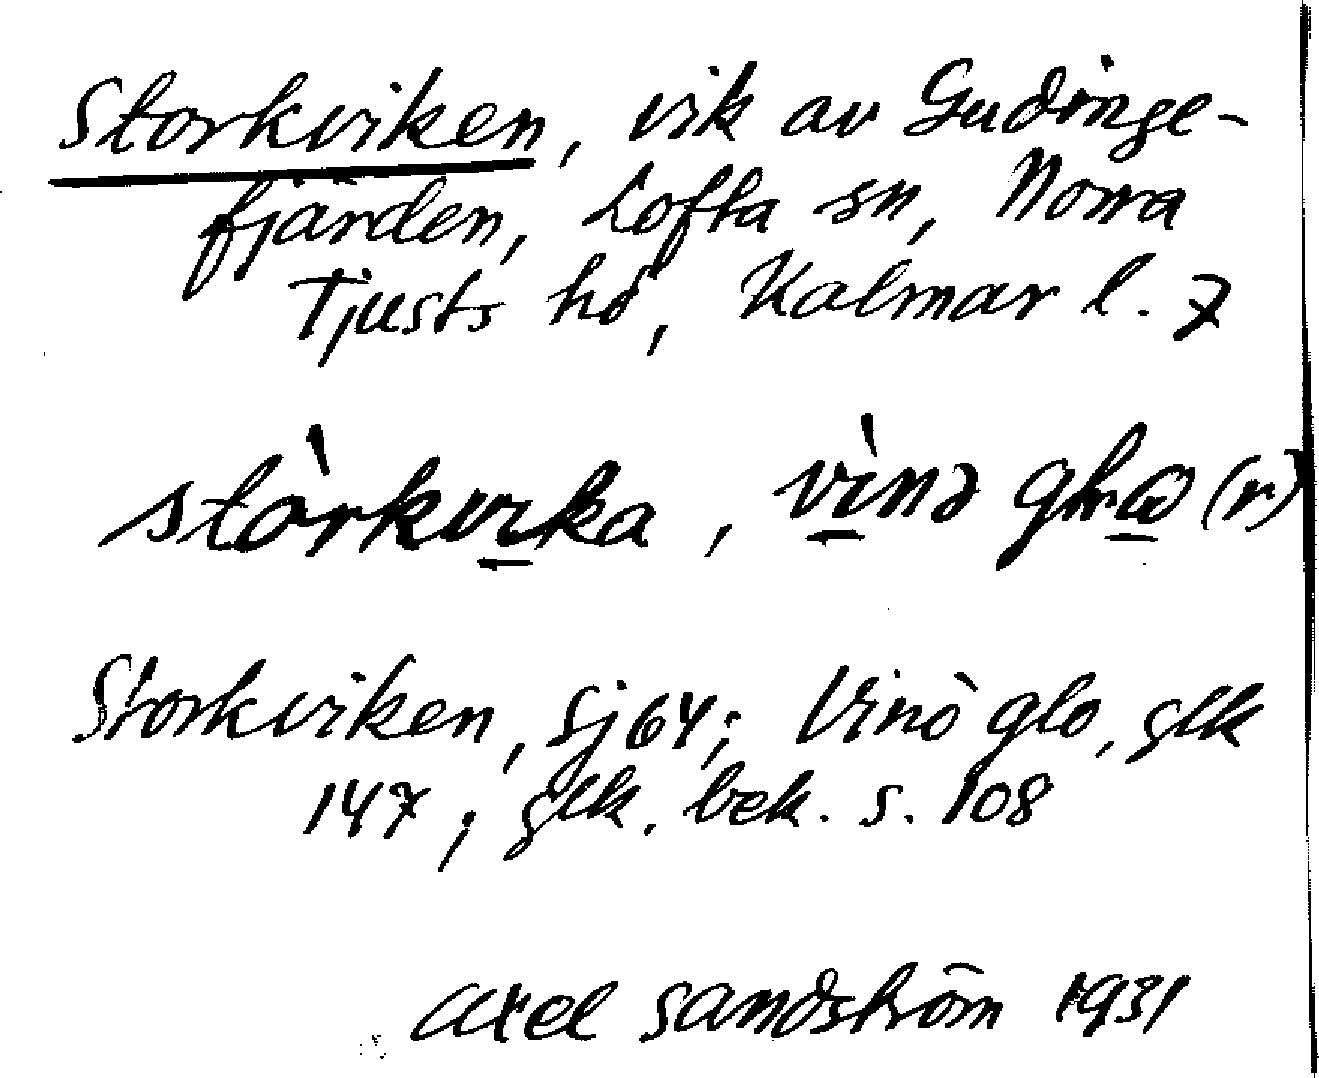 Storkviken, vik av Gudinge-
fjärden, Lofta sn, Norra
Tjusts hd, Kalmar l. 7
stòrkvɪka, vìnə
Storkviken, Sj 64; Vinö glo, glk
147; glk. bek. s. 108
Axel Sandström 1931